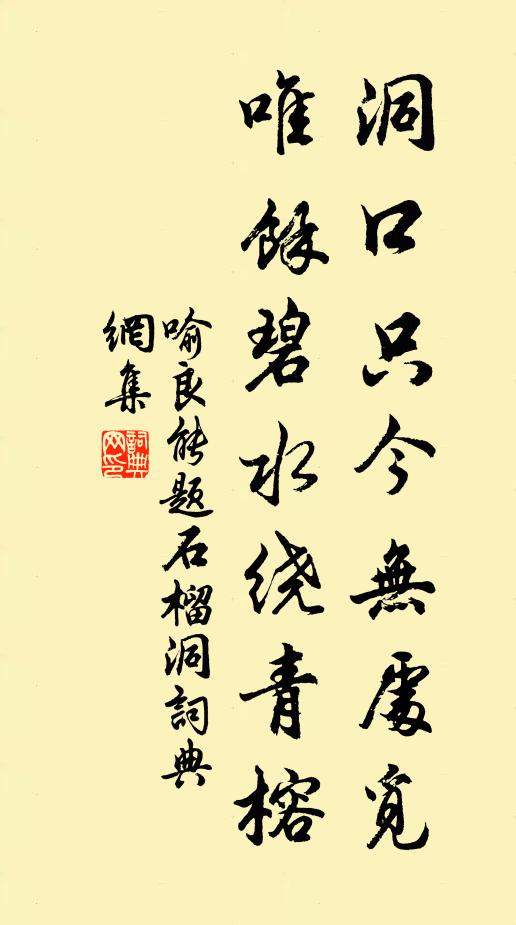 洞口只今無處覓
唯餘碧水绕青榕
喻良能題石榴洞詞典
網集
詞典網印